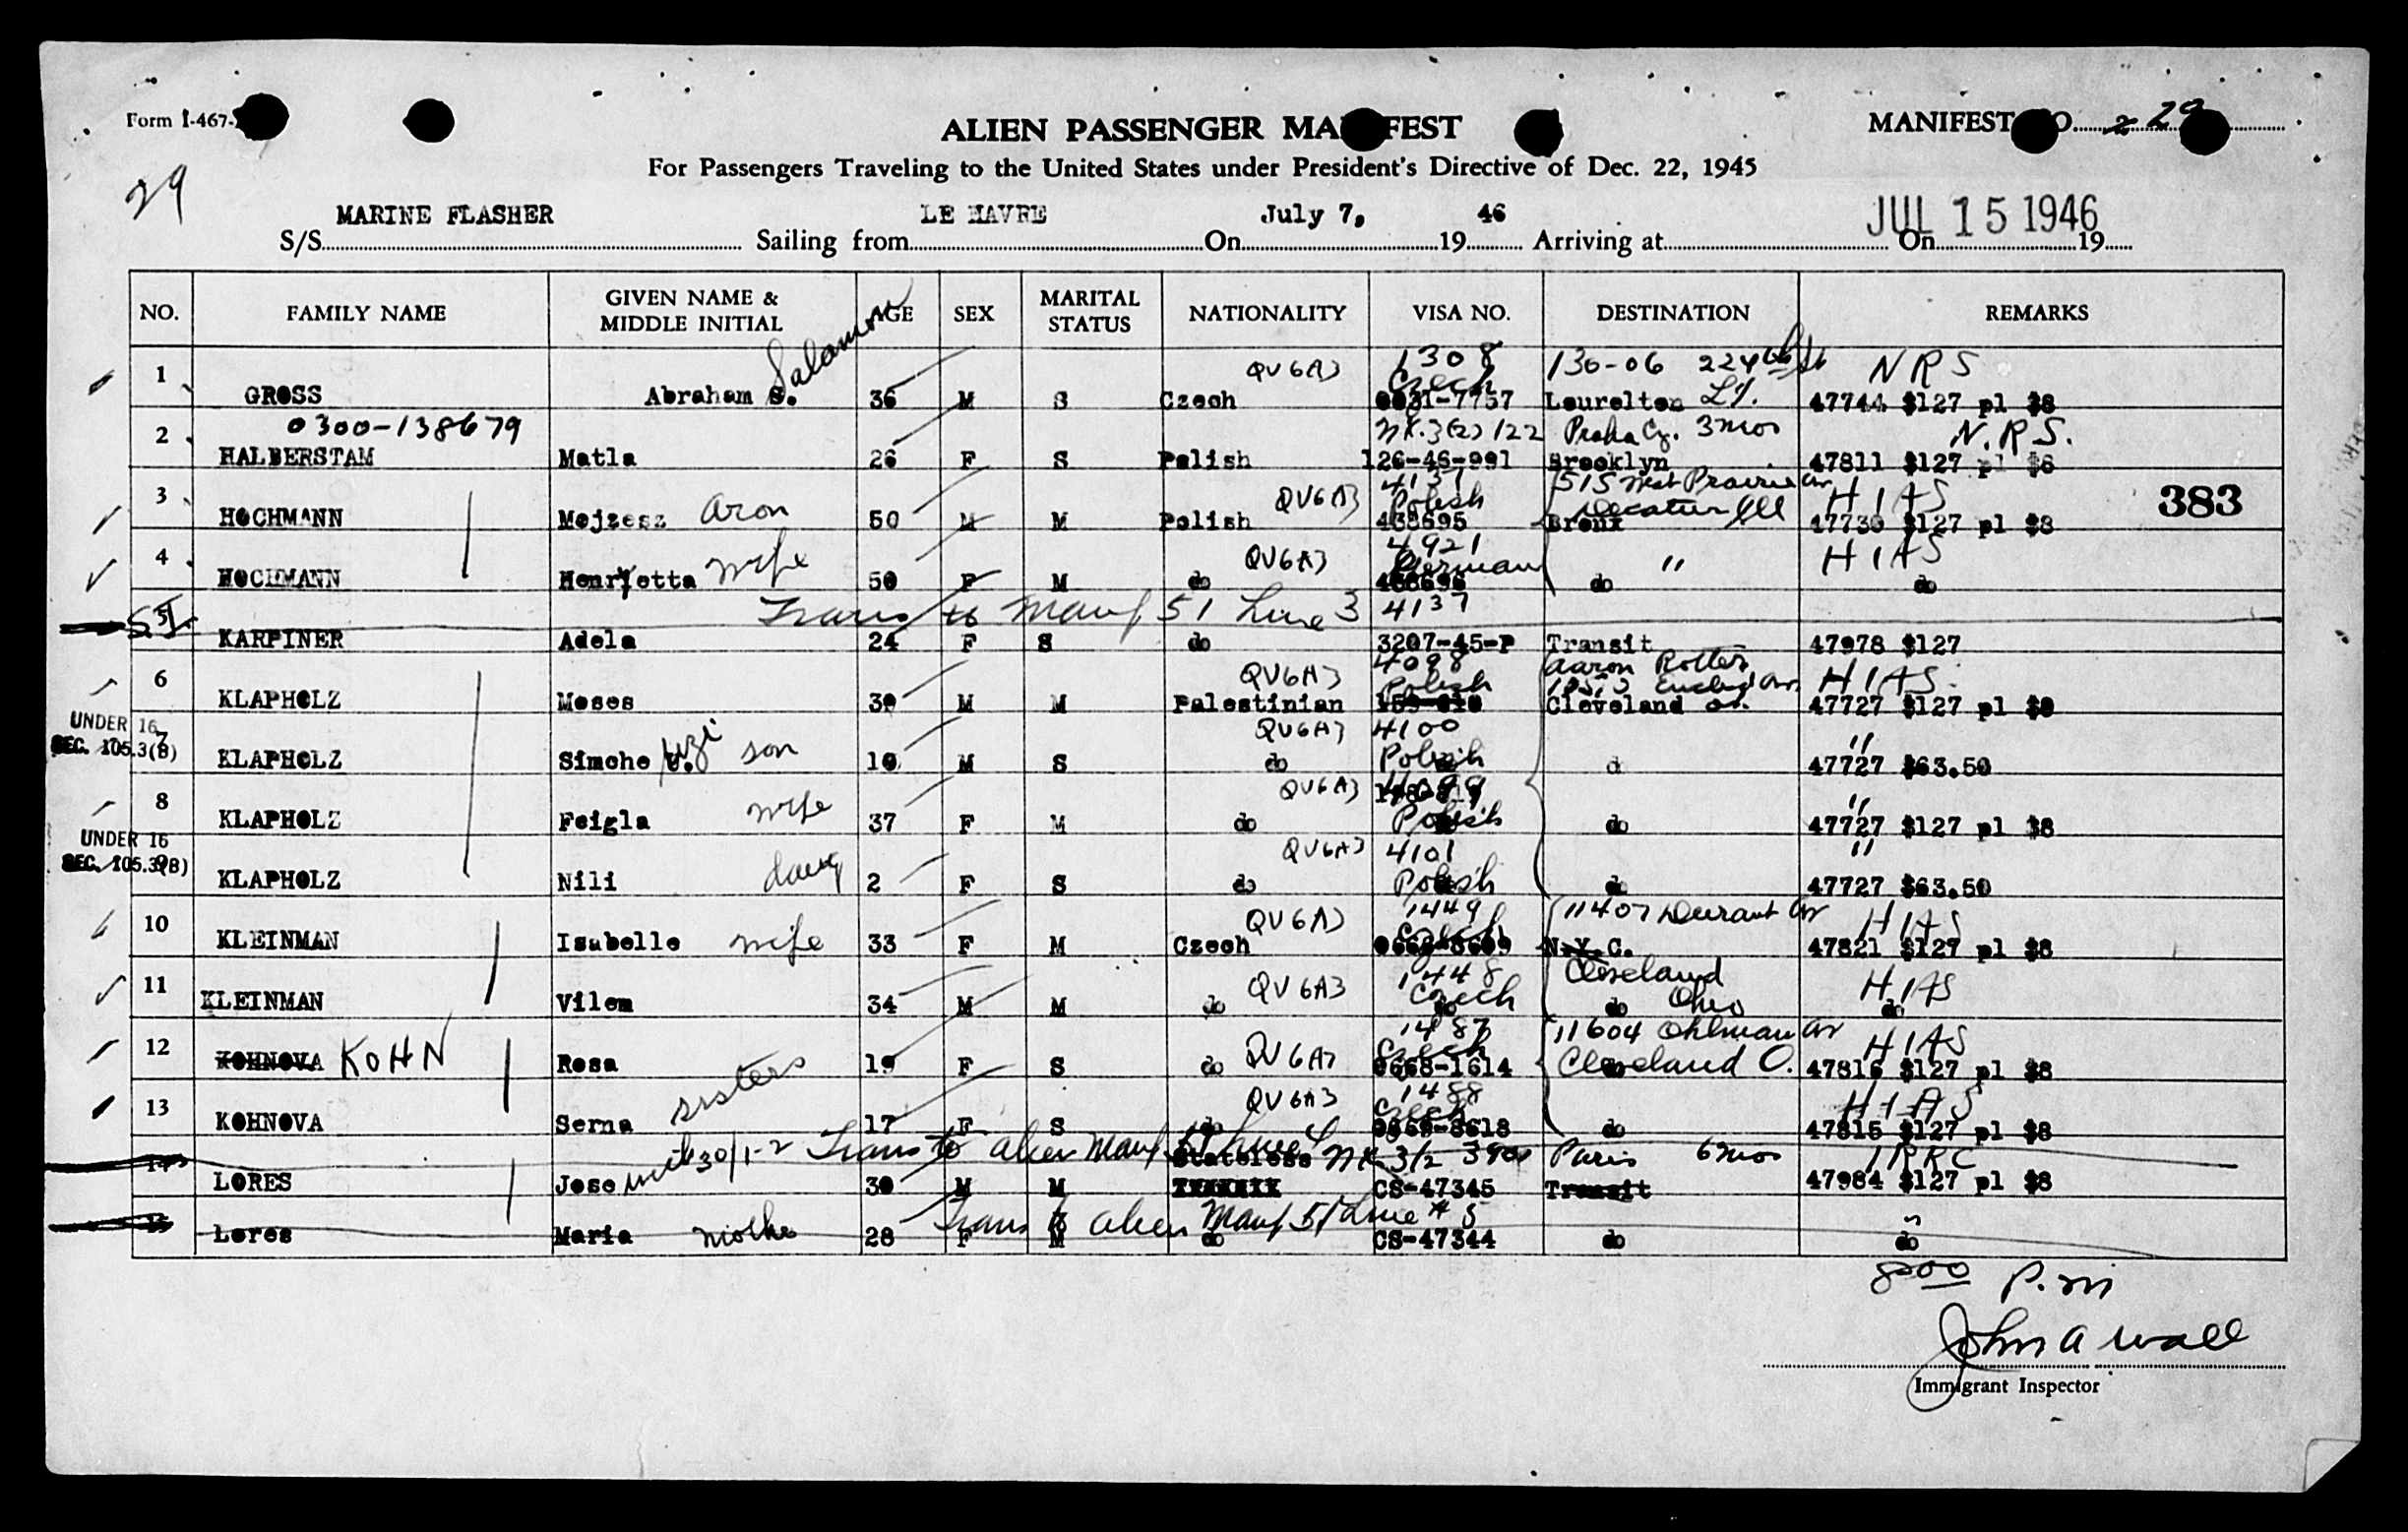 Form I-467-
ALIEN PASSENGER MA FEST
MANIFEST O. 29
For Passengers Traveling to the United States under President's Directive of Dec. 22, 1945
29
S/S MARINE FLASHER Sailing from LE HAVRE On July 7, 19 46 Arriving at On JUL 15 1946 19
NO. FAMILY NAME GIVEN NAME & MIDDLE INITIAL AGE SEX MARITAL STATUS NATIONALITY VISA NO. DESTINATION REMARKS
Salamon QV6A3 1308 130-06 224th St NRS
1 GROSS Abraham S. 36 M S Czech Czech 0031-7757 Laurelton L.I. 47744 $127 pl $8
0300-138679 3(2) 122 Praha Cz. 3 mos N.R.S.
2 HALBERSTAM Matla 26 F S Polish 126-46-991 Brooklyn 47811 $127 pl $8
QV6A3 4137 Polish 515 West Prairie av HIAS 383
3 HOCHMANN Mojzesz Aron 50 M M Polish 438695 Bronx Decatur Ill 47730 $127 pl $8
QV6A3 4921 German " HIAS
4 HOCHMANN Henryetta wife 50 F M do do do
Trans to Manf 51 Line 3 4137
5 KARPINER Adela 24 F S do 3207-45-P Transit 47978 $127
QV6A3 4098 Polish Aaron Rotter Euclid Av. HIAS
6 KLAPHOLZ Moses 39 M M Palestinian Cleveland O. 47727 $127 pl $8
UNDER 16 SEC. 105.3(B) QV6A3 4100 "
7 KLAPHOLZ Simche U. Uzi son 10 M S do Polish d 47727 $63.50
QV6A3 4099 "
8 KLAPHOLZ Feigla wife 37 F M do Polish do 47727 $127 pl $8
UNDER 16 SEC. 105.3(B) QV6A3 4101 "
9 KLAPHOLZ Nili daug 2 F S do Polish do 47727 $63.50
QV6A3 1449 Czech 11407 Durant Av HIAS
10 KLEINMAN Isabelle wife 33 F M Czech N.Y.C. 47821 $127 pl $8
QV6A3 1448 Cleveland Ohio HIAS
11 KLEINMAN Vilem 34 M M do Czech do do
1487 11604 Ohlman Av HIAS
12 KOHNOVA KOHN Rosa 19 F S do QV6A3 Czech 0668-1614 Cleveland O. 47816 $127 pl $8
sisters QV6A3 1488 HIAS
13 KOHNOVA Serna 17 F S do Czech 0669-8618 do 47815 $127 pl $8
with 30/1-2 Trans to alien Manf. 51 Line 4 Stateless 3/2 Paris 6 mos
14 LORES Jose 30 M M CS-47345 Transit 47984 $127 pl $8
Trans to alien Manf 51 Line # 5
15 Lores Maria mother 28 F M do CS-47344 do do
8:00 P.M
John A Wall
Immigrant Inspector